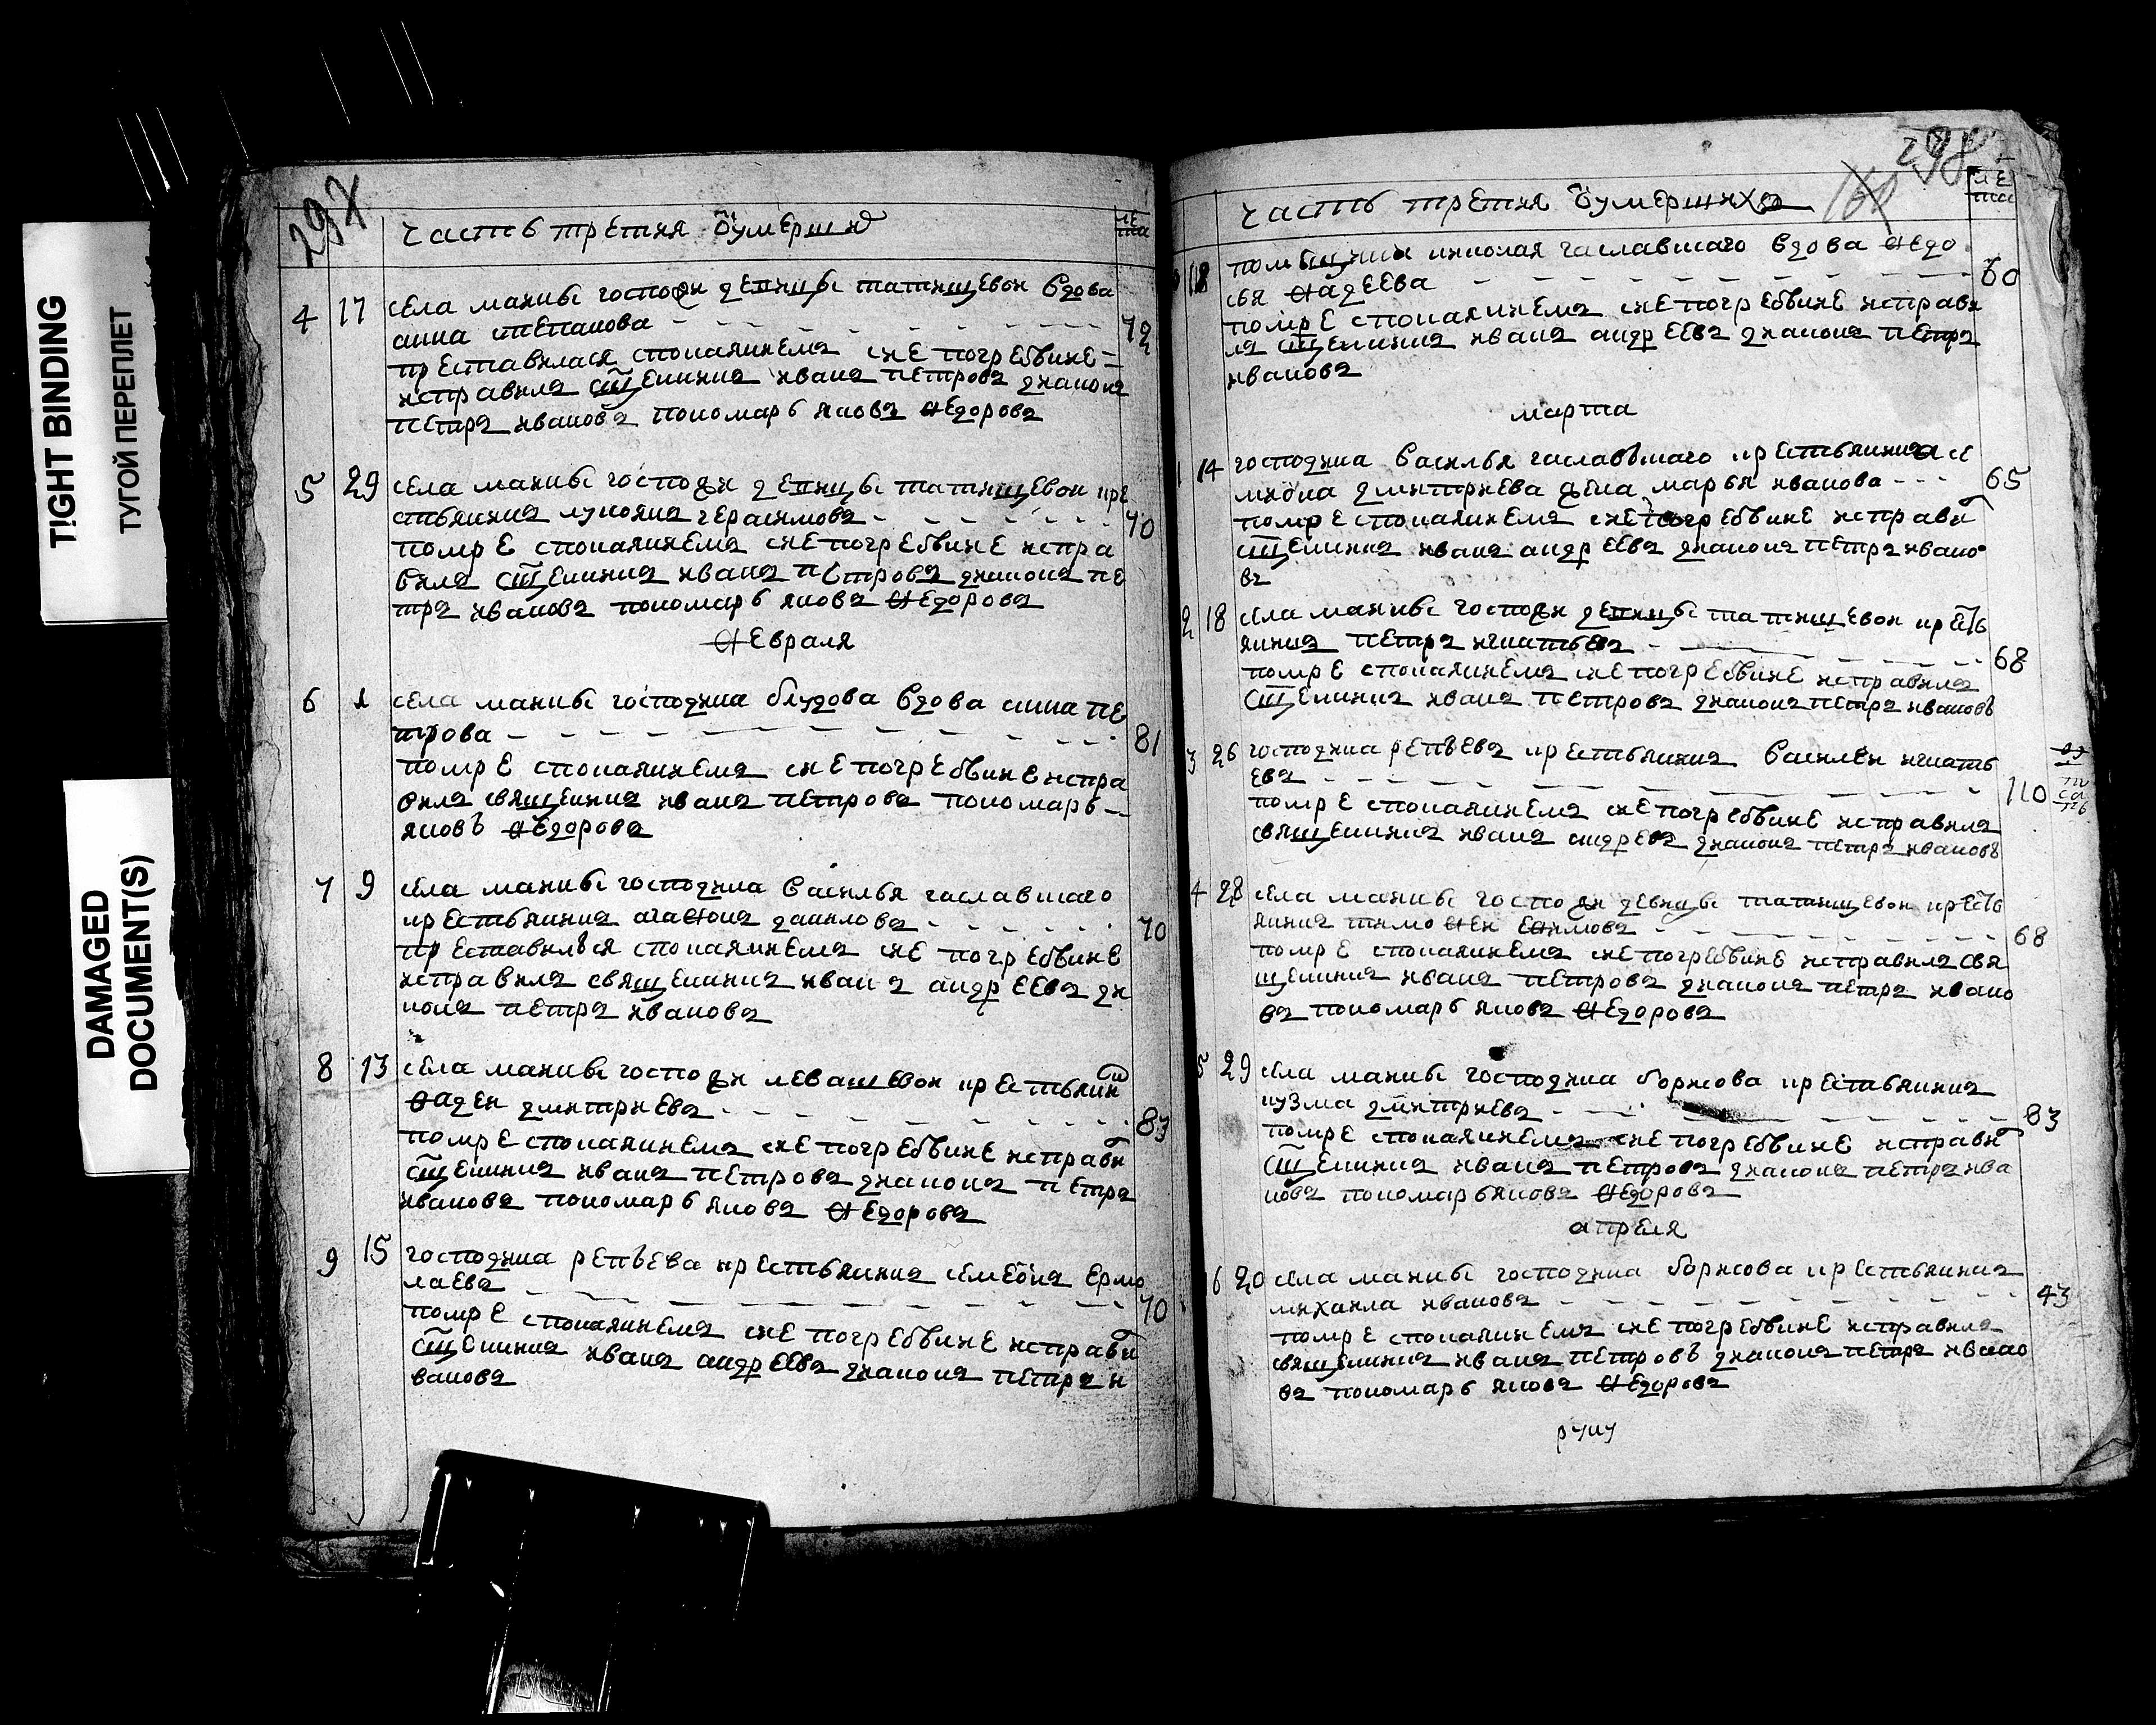 TIGHT BINDING
ТУГОЙ ПЕРЕПЛЕТ
DAMAGED
DOCUMENT(S)
297
часть третия ѿумерших
ле
та
4 17 села маникѣ госпожи девицы татищевои вдова
анна степанова 72
преставилася спокаянием и непогребение
исправил сщенник иван петров диакон
петр иванов пономарь яков ѳедоров
5 29 села маникѣ госпожи девицы татищевои кре
стьянин лукоян герасимов 70
помре спокаянием и непогребение испра
вил сщенник иван петров диакон пе
тр иванов пономарь яков ѳедоров
ѳевраля
6 1 села маникѣ господина блудова вдова анна пе
трова 81
помре спокаянием и непогребение испра
вил священник иван петров пономарь
яковъ ѳедоров
7 9 села маникѣ господина василья чаславскаго
крестьянин агаѳон данилов 70
преставилъся спокаянием и не погребение
исправил священник иван андреев ди
кон петр иванов
8 13 села маникѣ госпожи левашевои крестьянин
ѳадеи дмитриев 83
помре спокаянием и непогребение исправи
сщенник иван петров диакон петр
иванов пономарь яков ѳедоров
9 15 господина репъева крестьянин семеон ермо
лаев 70
помре спокаянием и непогребение исправи
сщенник иван андреев диакон петр и
ванов
298
часть третия ѿумерших
ле
та
18 николая чаславскаго вдова ѳедо
сья ѳадеева 60
помре спокаянием и непогребение исправи
л сщенник иван андреев диакон петр
иванов
марта
1 14 господина василья чаславъскаго крестьянина се
миона дмитриева жена марья иванова 65
помре спокаянием и непогребение исправи
сщенник иван андреев диакон петр ивано
в
2 18 села маникѣ госпожи девицы татищевои крестъ
янин петр игнатьев 68
помре спокаянием и непогребение исправил
сщенник иван петров диакон петр ивановъ
3 26 господина репъева крестьянин василеи игнать
ев 110
помре спокаянием и непогребение исправил
священник иван андрев диакон петр ивановъ
4 28 села маникѣ госпожи девицы татищевои крестъ
янин тимоѳеи еѳимов 68
помре спокаянием и непогребение исправил свя
щенник иван петров диакон петр ивано
в пономарь яков ѳедоров
5 29 села маникѣ господина борисова крестьянин
кузма дмитриев 83
помре спокаянием и непогребение исправи
сщенник иван петров диакон петр ива
нов пономарь яков ѳедоров
апреля
6 20 села маникѣ господина борисова крестьянин
михаила иванов 43
помре спокаянием и непогребение исправил
священник иван петровъ диакон петр ивано
в пономарь яков ѳедоров
руку